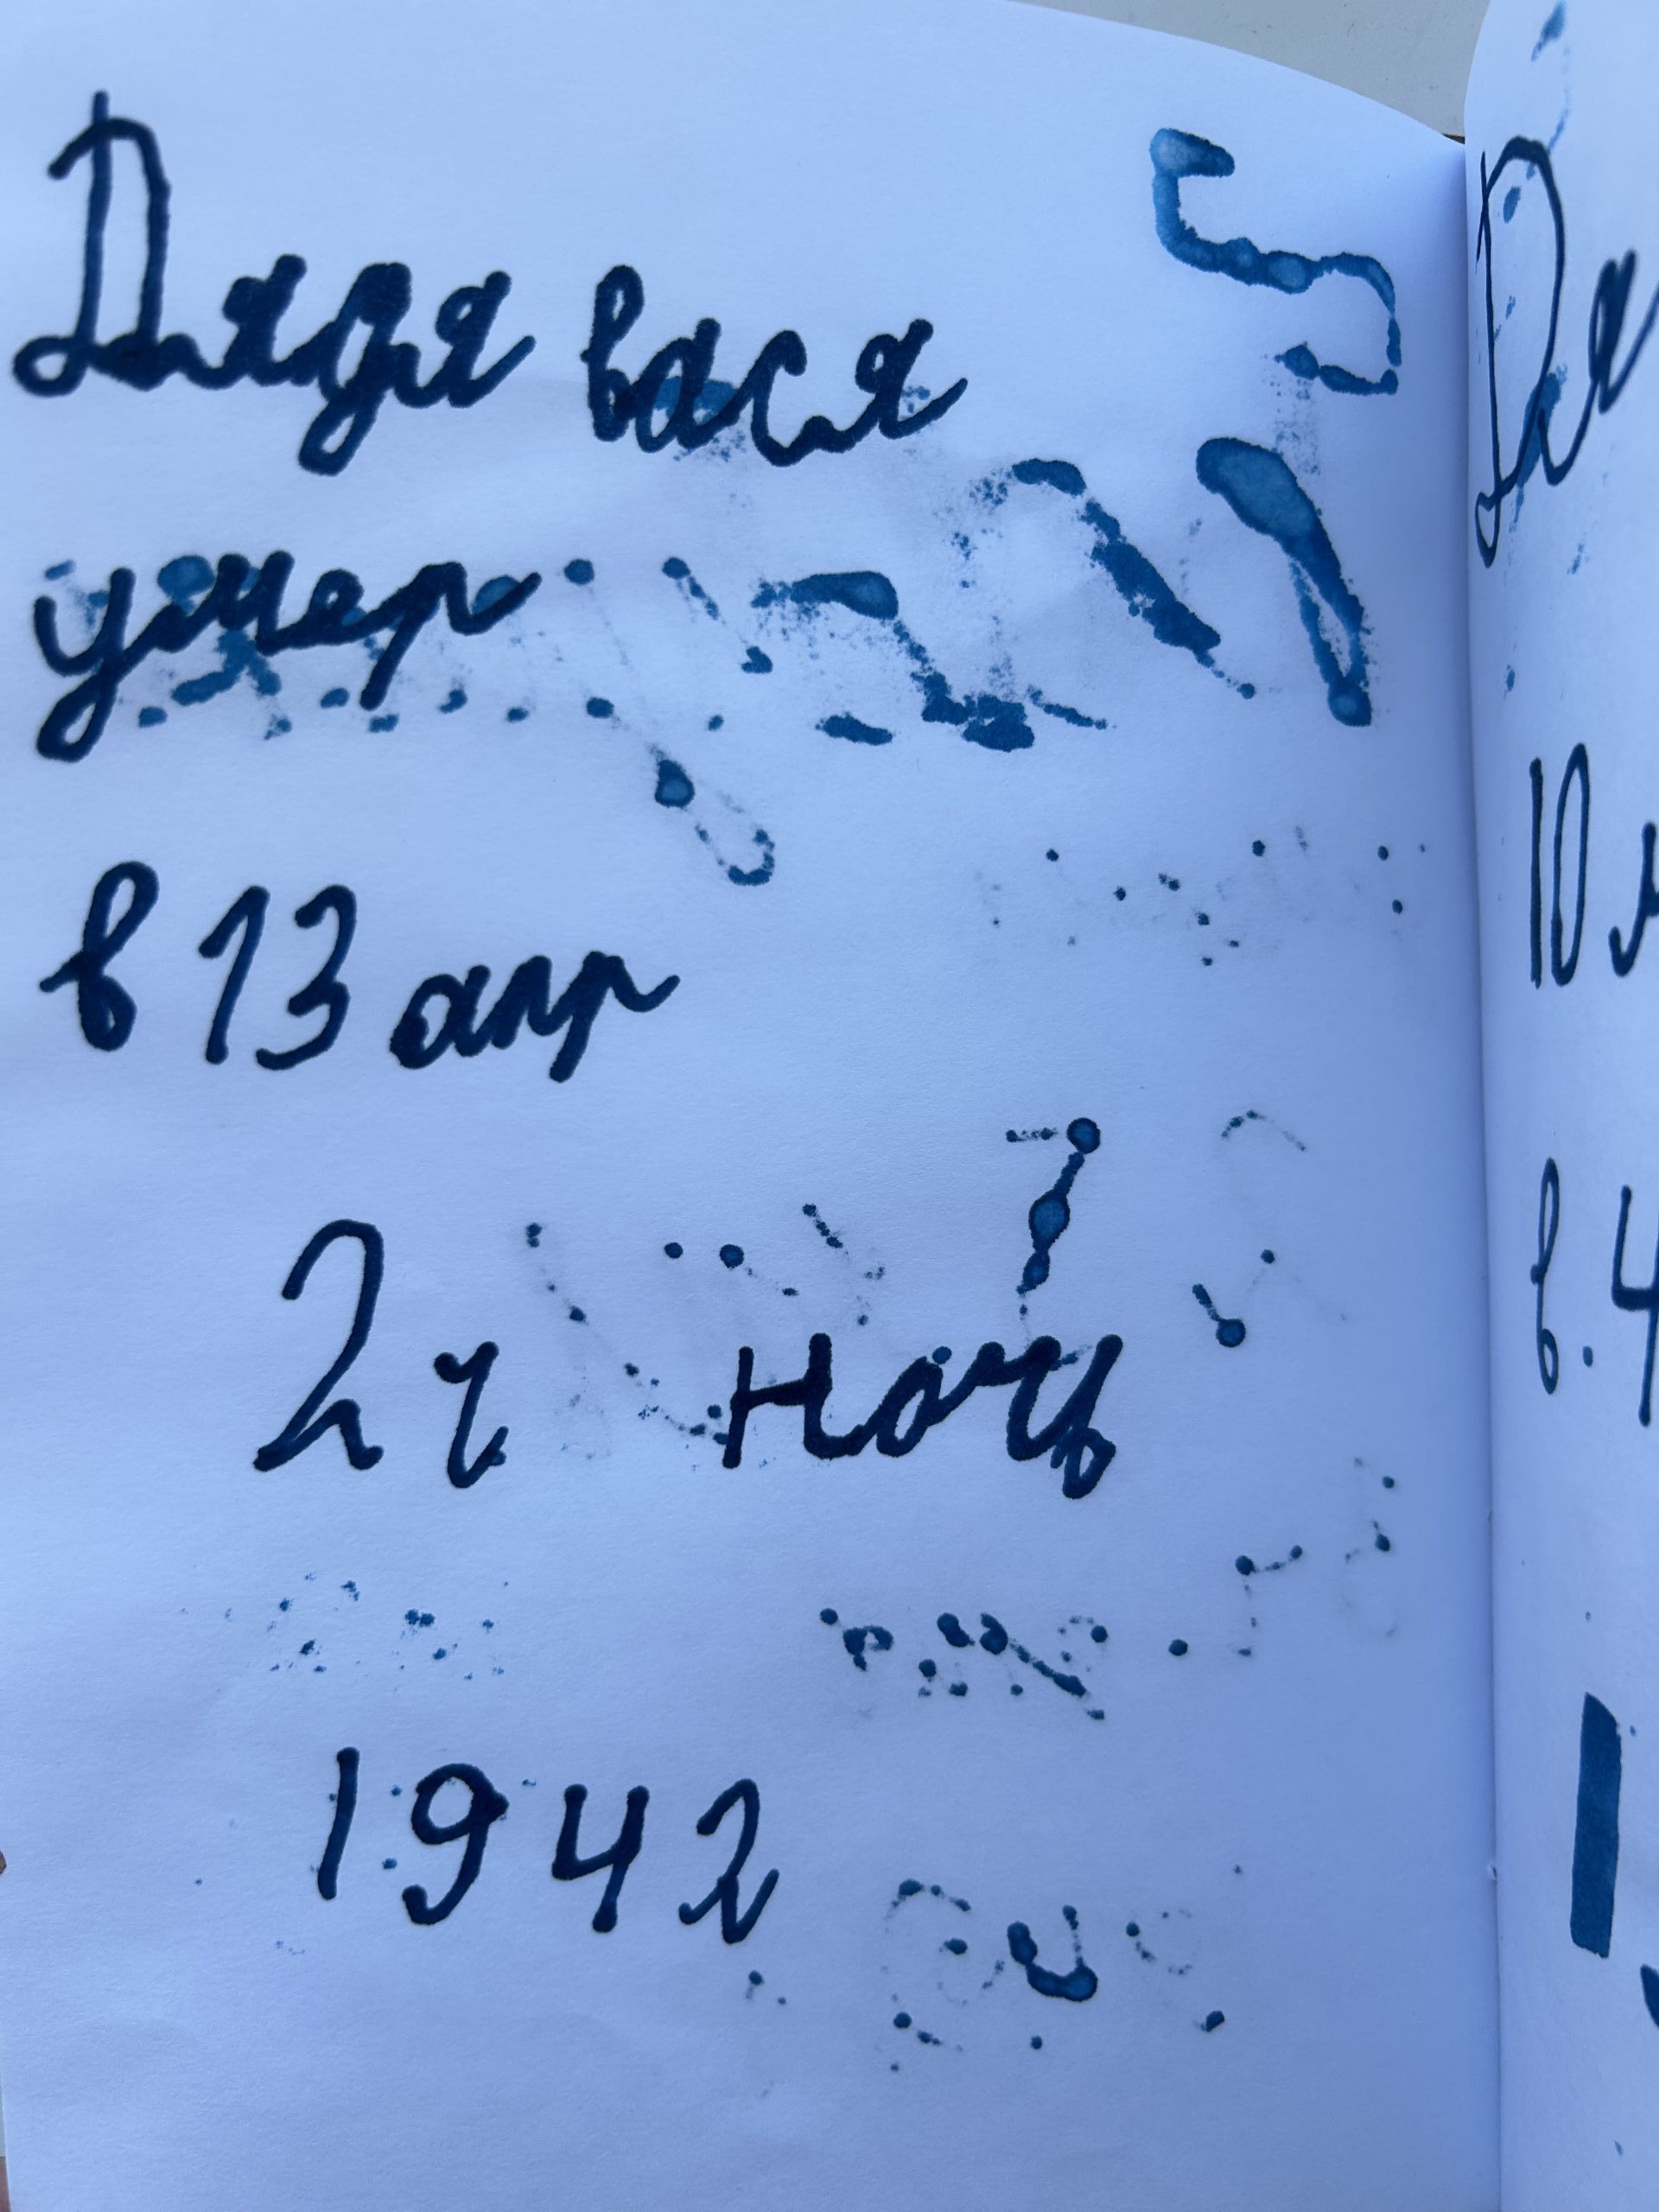 Дядя вася
умер
в 13 апр
2ч ночь
1942
Дя
10 м
в. 4